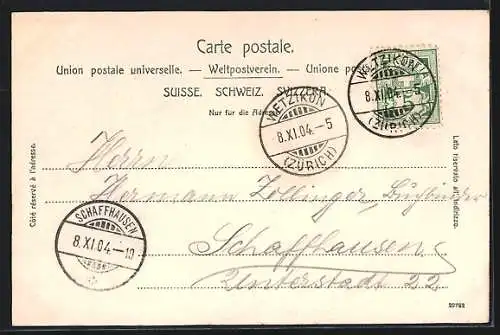 Carte postale.
Union postale universelle. — Weltpostverein. — Unione postale
SUISSE. SCHWEIZ. SVIZZERA.
Nur für die Adresse
WETZIKON
8.XI.04.-5
(ZÜRICH)
WETZIKON
8.XI.04.-5
(ZÜRICH)
Côté réservé à l'adresse.
Lato riservato all'indirizzo.
Herrn
Hermann Zollinger, Buchbinder
Schaffhausen
Unterstadt 22
SCHAFFHAUSEN
8.XI.04.-10